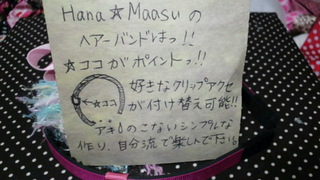 Hana☆Maasuの
ヘアーバンドはっ!!
☆ココがポイントっ!!
←☆ココ
好きなクリップアクセ
が付け替え可能!!
アキのこないシンプルな
作り、自分流で楽しんで下さい。